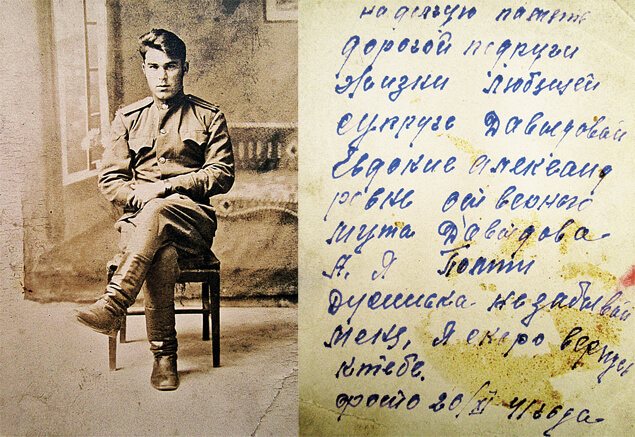 на долгую память
дорогой подруги
жизни любящей
супруге Давыдовой
Евдокие Александ
ровне от верного
мужа Давыдова
А. Я.
Дусинька не забывай
меня, Я скоро вернусь
к тебе.
фото 20/XI 41 года